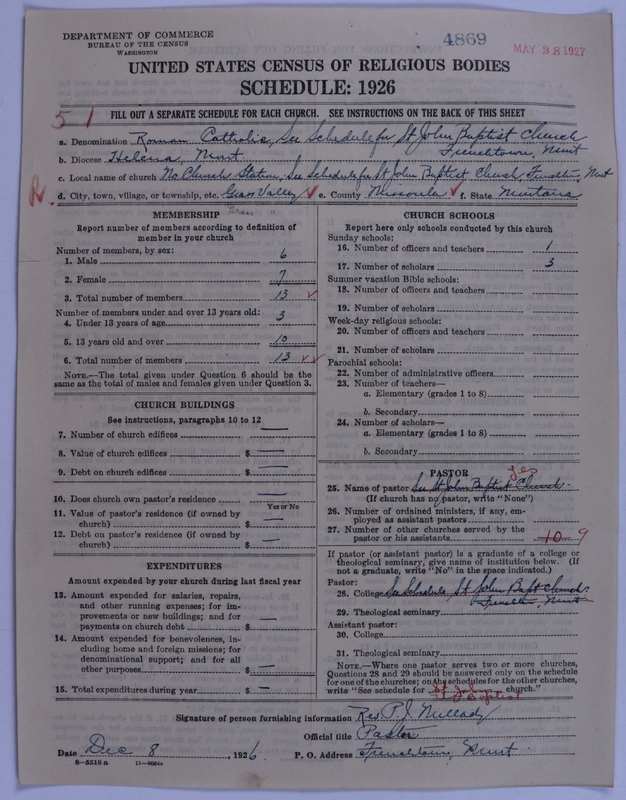 DEPARTMENT OF COMMERCE
BUREAU OF THE CENSUS
WASHINGTON
4869
MAY 28 1927
UNITED STATES CENSUS OF RELIGIOUS BODIES
SCHEDULE: 1926
51
FILL OUT A SEPARATE SCHEDULE FOR EACH CHURCH. SEE INSTRUCTIONS ON THE BACK OF THIS SHEET
a. Denomination Roman Catholic, See Schedule for St John Baptist Church
Frenchtown, Mont
b. Diocese Helena, Mont.
c. Local name of church No Church Station, See Schedule for St John Baptist Church, Mont
R. d. City, town, village, or township, etc. Grass Valley ✓ e. County Missoula ✓ f. State Montana
Grass "
MEMBERSHIP
Report number of members according to definition of
member in your church
Number of members, by sex:
1. Male 6
2. Female 7
3. Total number of members 13 ✓
Number of members under and over 13 years old:
4. Under 13 years of age 3
5. 13 years old and over 10
6. Total number of members 13 ✓✓
NOTE.—The total given under Question 6 should be the
same as the total of males and females given under Question 3.
CHURCH BUILDINGS
See instructions, paragraphs 10 to 12
7. Number of church edifices —
8. Value of church edifices $ —
9. Debt on church edifices $ —
10. Does church own pastor's residence —
Yes or No
11. Value of pastor's residence (if owned by
church) $ —
12. Debt on pastor's residence (if owned by
church) $ —
EXPENDITURES
Amount expended by your church during last fiscal year
13. Amount expended for salaries, repairs,
and other running expenses; for im-
provements or new buildings; and for
payments on church debt $ —
14. Amount expended for benevolences, in-
cluding home and foreign missions; for
denominational support; and for all
other purposes $ —
15. Total expenditures during year $ —
CHURCH SCHOOLS
Report here only schools conducted by this church
Sunday schools:
16. Number of officers and teachers 1
17. Number of scholars 3
Summer vacation Bible schools:
18. Number of officers and teachers
19. Number of scholars
Week-day religious schools:
20. Number of officers and teachers
21. Number of scholars
Parochial schools:
22. Number of administrative officers
23. Number of teachers—
a. Elementary (grades 1 to 8)
b. Secondary
24. Number of scholars—
a. Elementary (grades 1 to 8)
b. Secondary
PASTOR
yes
25. Name of pastor See St John Baptist Church.
(If church has no pastor, write "None")
26. Number of ordained ministers, if any, em-
ployed as assistant pastors
27. Number of other churches served by the
pastor or his assistants 10 9
If pastor (or assistant pastor) is a graduate of a college or
theological seminary, give name of institution below. (If
not a graduate, write "No" in the space indicated.)
Pastor:
28. College See Schedule St John Bapt Church.
Mont
29. Theological seminary
Assistant pastor:
30. College
31. Theological seminary
NOTE.—Where one pastor serves two or more churches,
Questions 28 and 29 should be answered only on the schedule
for one of the churches; on his schedules for the other churches,
write "See schedule for St. John church."
Baptist
Signature of person furnishing information Rev. P. J.
Official title Pastor
Date Dec 8, 1926 P. O. Address Frenchtown, Mont.
8—5518 a